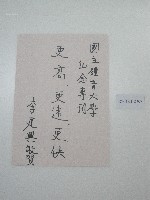 國立體育大學
紀念專刊
更高 更遠 更快
李光典敬賀